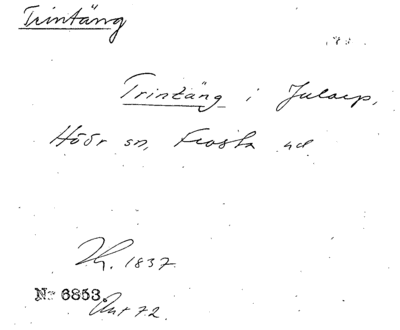 Trintäng
Trintäng i Jularp,
Höör sn, Frosta hd
1837
№ 6853
72